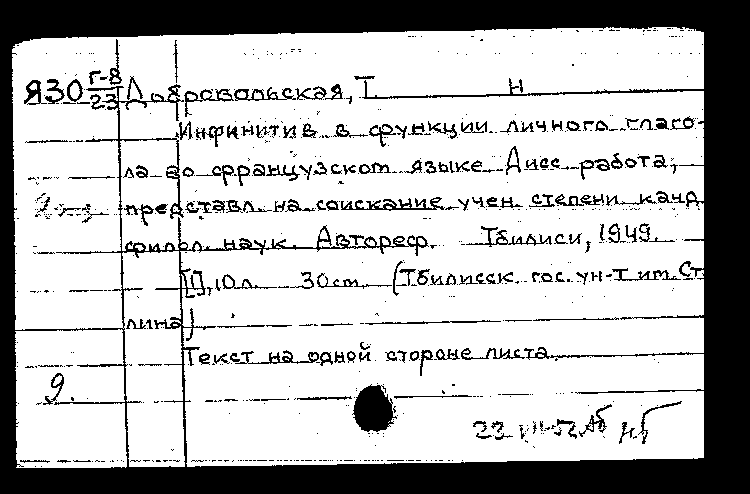 Я30 Г-8/23 Добровольская, Т Н
Инфинитив в функции личного глаго-
ла во французском языке. Дисс. работа,
представл. на соискание учен. степени канд.
филол. наук. Автореф. Тбилиси, 1949.
[I], 10 л. 30 см. (Тбилисск. гос. ун-т им. Ста
лина)
Текст на одной стороне листа.
9.
23 VIII-52